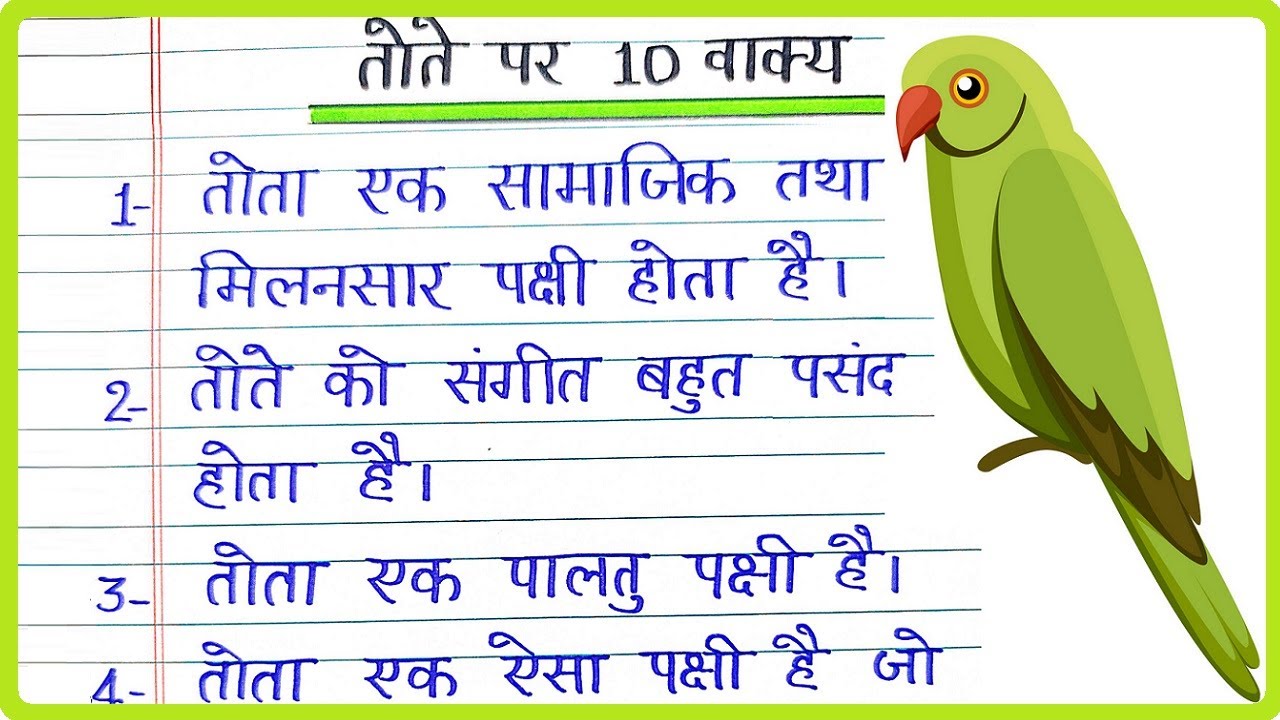 तोते पर 10 वाक्य
1- तोता एक सामाजिक तथा
मिलनसार पक्षी होता है।
2- तोते को संगीत बहुत पसंद
होता है।
3- तोता एक पालतु पक्षी है।
4- तोता एक ऐसा पक्षी है जो